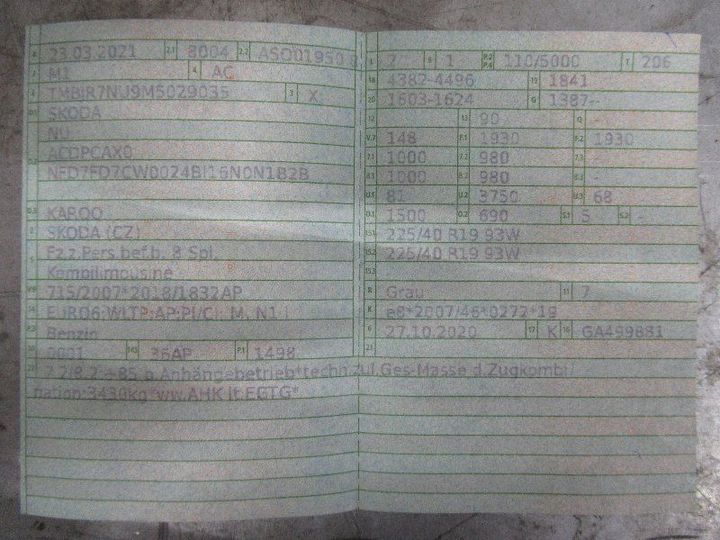 23.03.2021 2.1 8004 2.2 ASO01950 8
M1 4 AC
TMBJR7NU9M5029035 3 X
SKODA
NU
ACDPCAX0
NFD7FD7CW0024BI16N0N1B2B
KAROQ
SKODA (CZ)
Fz.z.Pers.bef.b. 8 Spl.
Kombilimousine
715/2007*2018/1832AP
EURO6;WLTP;AP;PI/CI; M, N1 I
Benzin
0001 36AP P.1 1498
7.2/8.2:+85 b.Anhängebetrieb*techn.zul.Ges-Masse d.Zugkombi/
nation:3430kg*ww.AHK lt.EGTG*
2 1 110/5000 T 206
18 4382-4496 19 1841
20 1603-1624 G 1387-
12 - 13 90 Q -
V.7 148 F.1 1930 F.2 1930
7.1 1000 7.2 980 7.3 -
8.1 1000 8.2 980 8.3 -
U.1 81 U.2 3750 U.3 68
O.1 1500 O.2 690 S.1 5 S.2 -
15.1 225/40 R19 93W
15.2 225/40 R19 93W
15.3
R Grau 11 7
K e8*2007/46*0272*19
6 27.10.2020 17 K 16 GA499881
21